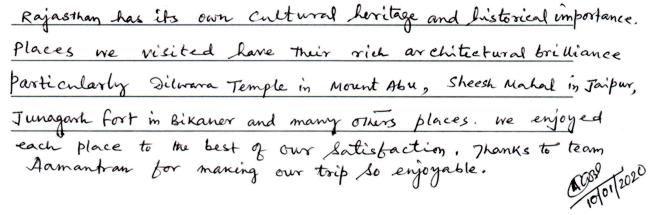 Rajasthan has its own cultural heritage and historical importance.
Places we visited have their rich architectural brilliance
particularly Dilwara Temple in Mount Abu, Sheesh Mahal in Jaipur,
Junagarh fort in Bikaner and many others places. We enjoyed
each place to the best of our satisfaction. Thanks to team
Aamantran for making our trip so enjoyable.
10/01/2020